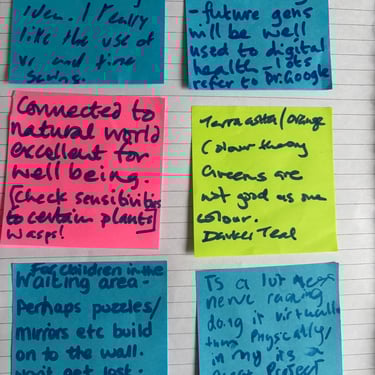 idea. I really
like the use of
vr and time
saving.
- future gens
will be well
used to digital
health - lots
refer to Dr. Google
Connected to
natural world
excellent for
well being.
[Check sensitivities
to certain plants]
wasps!
Terracotta/orange
Colour theory
Greens are
not good as one
colour.
Darker Teal
For children in the
waiting area -
Perhaps puzzles/
mirrors etc build
on to the wall.
won't get lost.
Is a lot
nerve racking
doing it virtually
than Physically/
in my its
Great Project